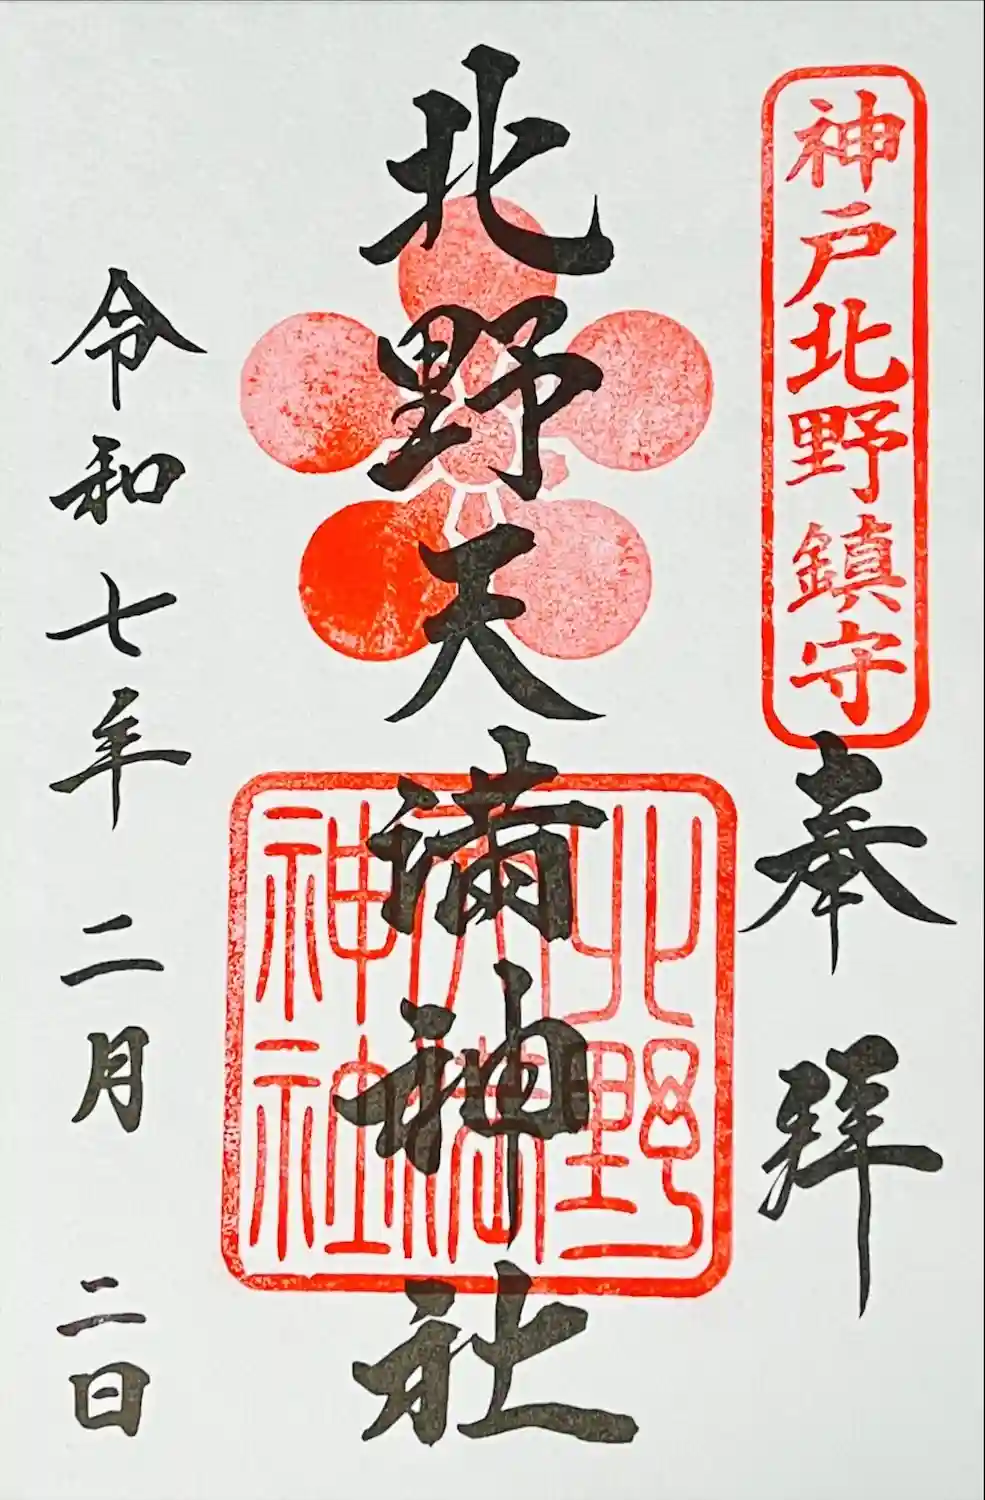 神戸北野鎮守
奉拝
北野天満神社
北野
天満
神社
令和七年二月二日